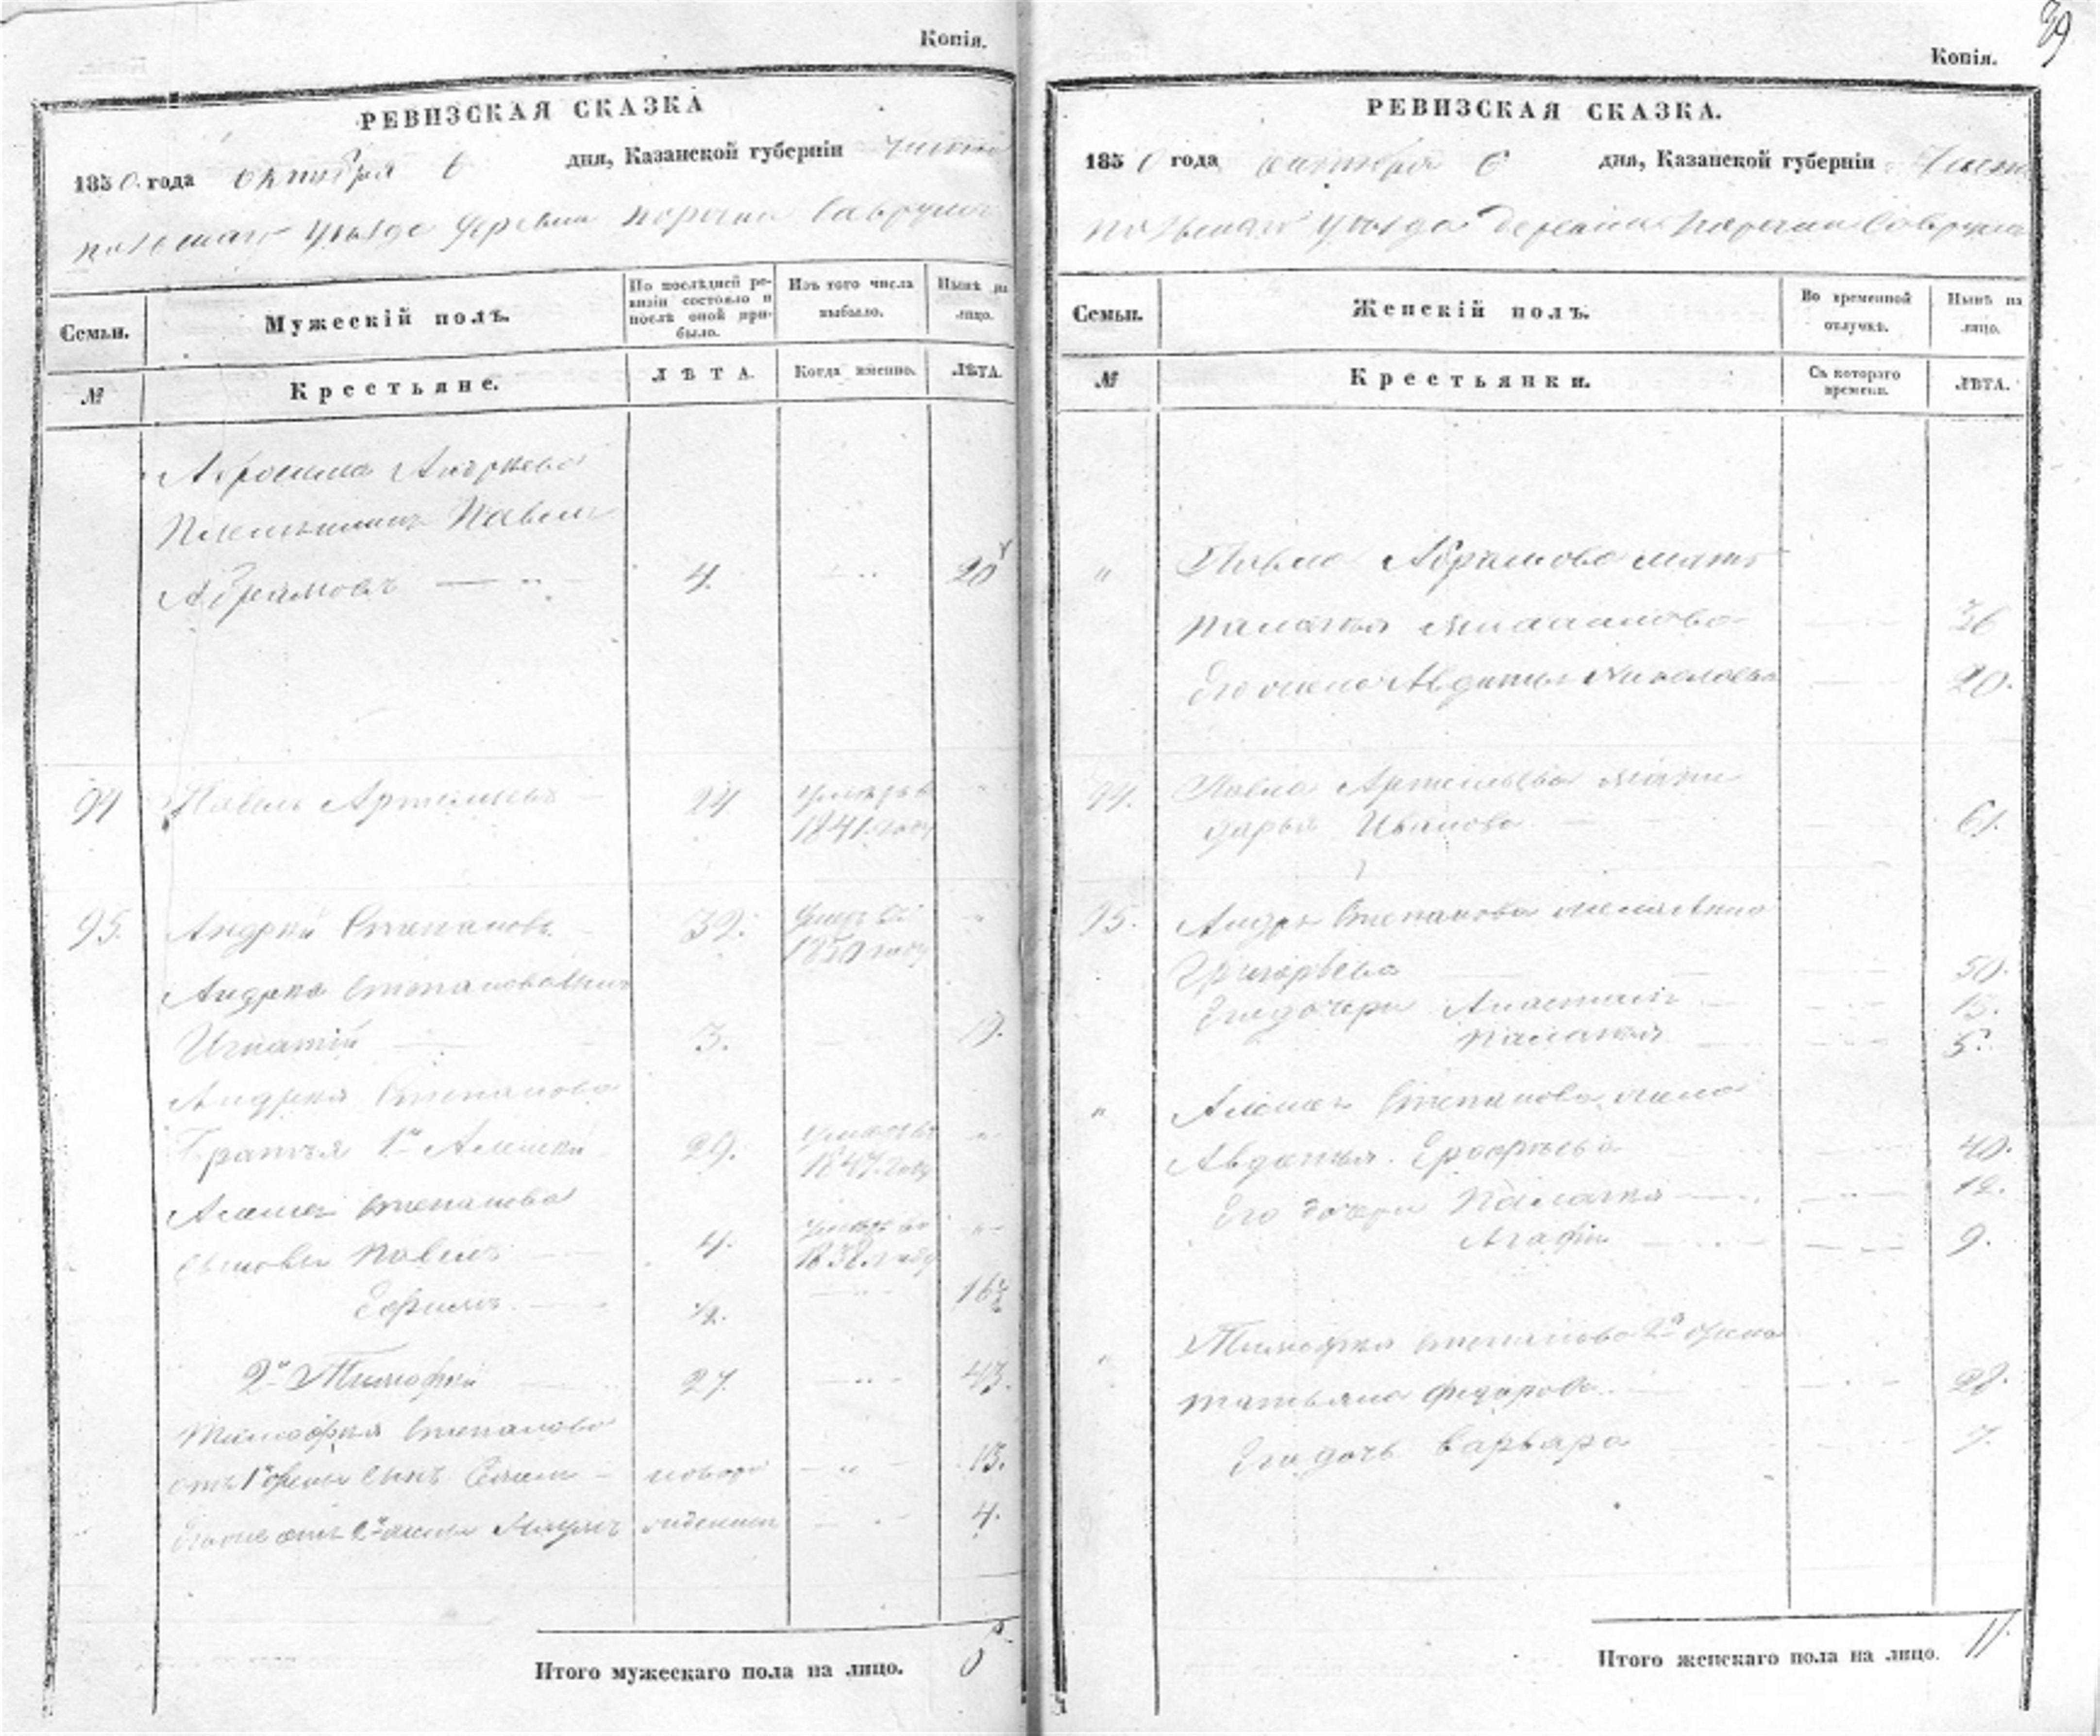 Копія.
РЕВИЗСКАЯ СКАЗКА
1850 года октября 6 дня, Казанской губерніи Чисто
польскаго уѣзда деревни
Семьи.
Мужескій полъ.
По послѣдней ре-
визіи состояло и
послѣ оной при-
было.
Изъ того числа
выбыло.
Нынѣ на
лицо.
№
Крестьяне.
ЛѢТА.
Когда именно.
ЛѢТА.
Андреева
Племянникъ Павелъ
Абрамовъ 4. 20
94 Павелъ Артемьевъ 24 умеръ въ
1841 году
95. Андрей Степановъ 32. умеръ въ
1850 году
Андрея Степанова сынъ
Игнатій 3. 19.
Андрея Степанова
братья 1й Алексѣй 29. умеръ въ
1847 году
Алексея Степанова
сыновья Павелъ 4. умеръ въ
Ефимъ 1/2. 16 1/2
2й Тимофей 27. 43.
Тимофея Степанова
отъ 1й жены сынъ новоро 13.
Его же отъ 2й жены жденный 4.
Итого мужескаго пола на лицо.
39
Копія.
РЕВИЗСКАЯ СКАЗКА.
1850 года октября 6 дня, Казанской губерніи Чисто
польскаго уѣзда деревни
Семьи.
Женскій полъ.
Во временной
отлучкѣ.
Нынѣ на
лицо.
№
Крестьянки.
Съ котораго
времени.
ЛѢТА.
" Павла Абрамова мать
Палагья
Его жена Авдотья Николаева 20.
94. Павла Артемьева мать
Дарья Иванова 61.
95. Андрея Степанова жена Анна
Григорьева 50.
Его дочери Анастасія 13.
Палагья 5.
" Алексея Степанова жена
Авдотья 40.
Его дочери Палагья 12.
Агафья 9.
" Тимофея Степанова 2я жена
Татьяна Федорова 28.
Его дочь Варвара 7.
Итого женскаго пола на лицо. 11.